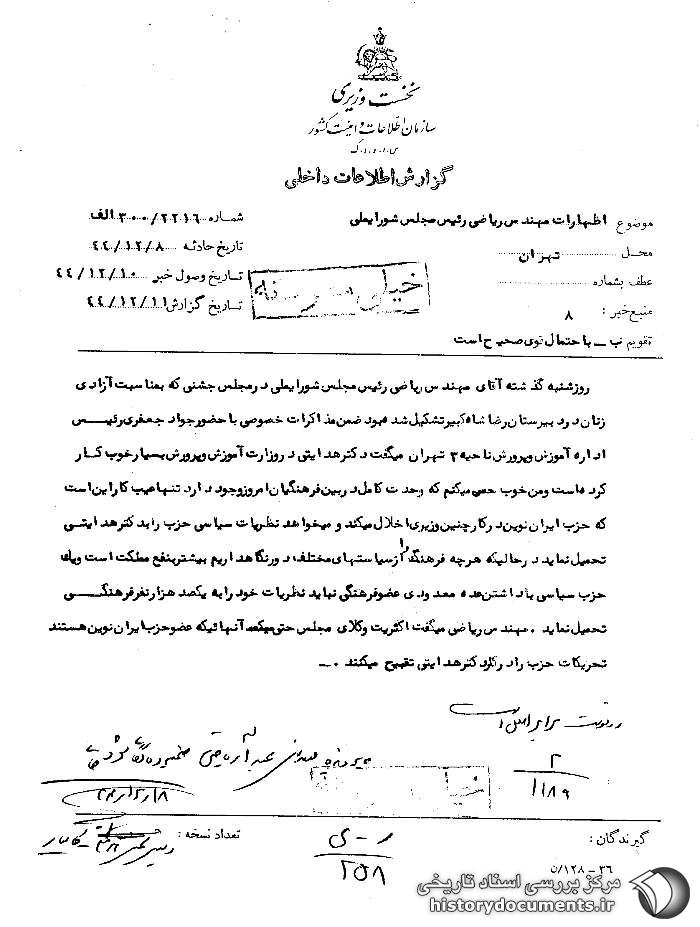 نخست وزیری
سازمان اطلاعات و امنیت کشور
س.ا.و.ا.ک
گزارش اطلاعات داخلی
موضوع اظهارات مهندس ریاضی رئیس مجلس شورایملی
شماره ۳۰۰/۲۲۱۶ الف
محل تهران
تاریخ حادثه ۴۴/۱۲/۸
عطف بشماره
تاریخ وصول خبر ۴۴/۱۲/۱۰
منبع خبر : ۸
تاریخ گزارش ۴۴/۱۲/۱۱
خیلی محرمانه
تقویم ب ــ باحتمال قوی صحیح است
روزشنبه گذشته آقای مهندس ریاضی رئیس مجلس شورایملی در مجلس جشنی که بمناسبت آزادی
زنان در دبیرستان رضا شاه کبیر تشکیل شده بود ضمن مذاکرات خصوصی با حضور جواد جعفری رئیس
اداره آموزش وپرورش ناحیه ۳ تهران میگفت دکتر هدایتی در وزارت آموزش وپرورش بسیار خوب کار
کرده است ومن خوب حس میکنم که وحدت کامل در بین فرهنگیان امروز وجود دارد تنها عیب کار این است
که حزب ایران نوین در کار چنین وزیری اخلال میکند و میخواهد نظریات سیاسی حزب را بدکتر هدایتی
تحمیل نماید در حالیکه هرچه فرهنگ را از سیاستهای مختلف دور نگاهداریم بیشتر بنفع مملکت است ویک
حزب سیاسی با داشتن عده معدودی عضو فرهنگی نباید نظریات خود را به یکصد هزار نفر فرهنگی
تحمیل نماید . مهندس ریاضی میگفت اکثریت وکلای مجلس حتی آنهائیکه عضو حزب ایران نوین هستند
تحریکات حزب را در کار دکتر هدایتی تقبیح میکنند . ــ
رونوشت برابر اصل است
۲
۱۱۸۹
گیرندگان :
تعداد نسخه :
۲۵۸
۳۶ – ۱۲۸/ن
مرکز بررسی اسناد تاریخی
historydocuments.ir